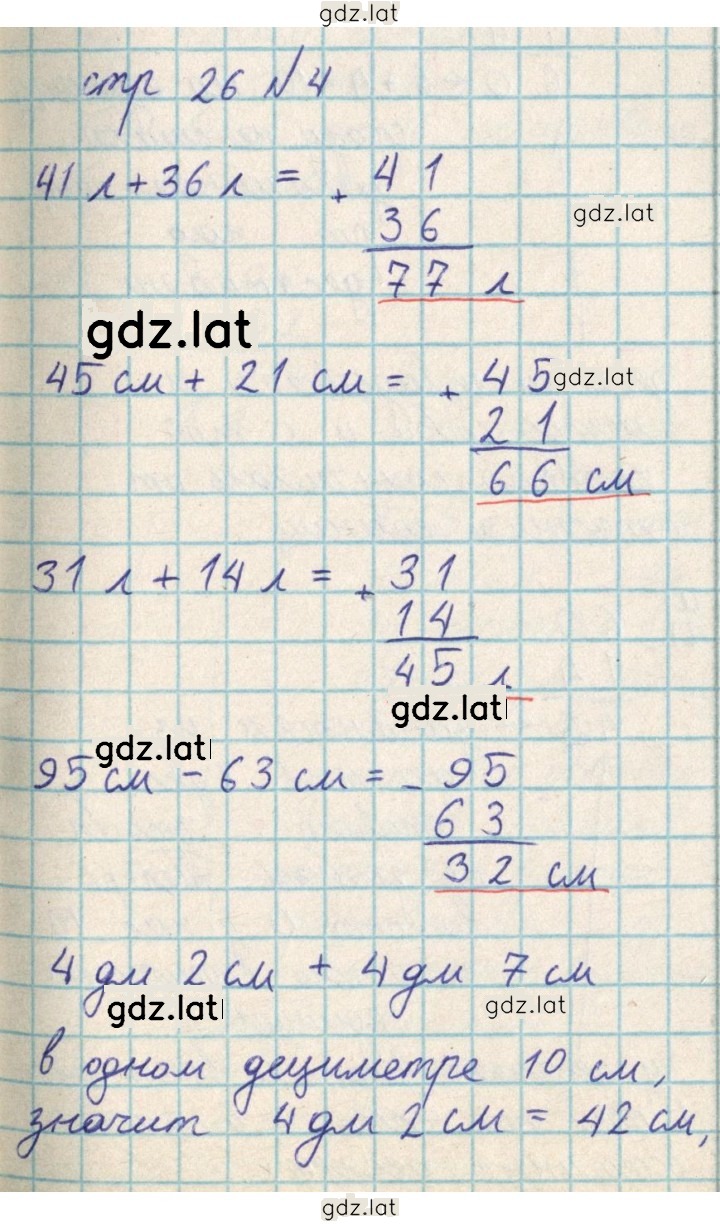 gdz.lat
стр 26 №4
41 л + 36 л = + 41
36
gdz.lat
77 л
gdz.lat
45 см + 21 см = + 45
gdz.lat
21
66 см
31 л + 14 л = + 31
14
45 л
gdz.lat
gdz.lat
95 см - 63 см = - 95
63
32 см
4 дм 2 см + 4 дм 7 см
gdz.lat
gdz.lat
в одном дециметре 10 см,
значит 4 дм 2 см = 42 см,
gdz.lat